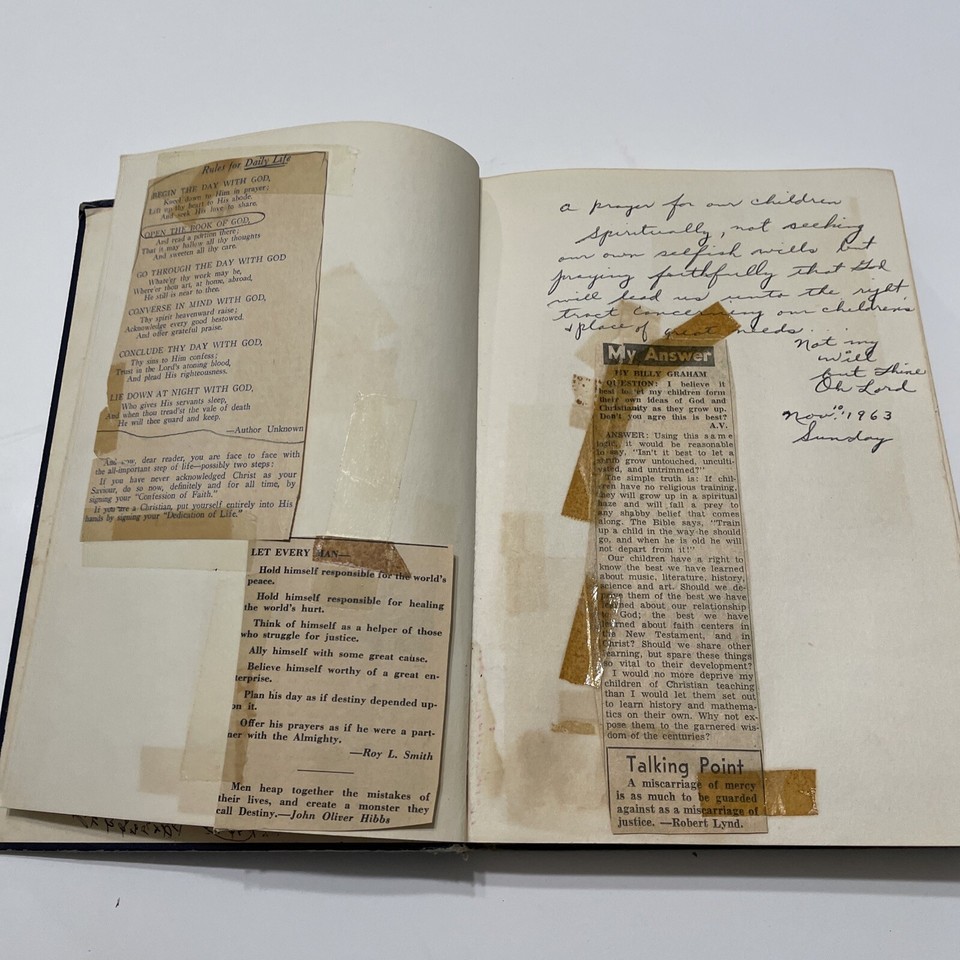 Rules for Daily Life
BEGIN THE DAY WITH GOD,
Kneel down to Him in prayer;
Lift up thy heart to His abode
And seek His love to share.
OPEN THE BOOK OF GOD,
And read a portion there;
That it may hallow all thy thoughts
And sweeten all thy care.
GO THROUGH THE DAY WITH GOD
Whate'er thy work may be,
Where'er thou art, at home, abroad,
He still is near to thee.
CONVERSE IN MIND WITH GOD,
Thy spirit heavenward raise;
Acknowledge every good bestowed.
And offer grateful praise.
CONCLUDE THY DAY WITH GOD,
Thy sins to Him confess;
Trust in the Lord's atoning blood,
And plead His righteousness.
LIE DOWN AT NIGHT WITH GOD,
Who gives His servants sleep,
And when thou tread'st the vale of death
He will thee guard and keep.
—Author Unknown
And now, dear reader, you are face to face with
the all-important step of life—possibly two steps:
If you have never acknowledged Christ as your
Saviour, do so now, definitely and for all time, by
signing your "Confession of Faith."
If you are a Christian, put yourself entirely into His
hands by signing your "Dedication of Life."
LET EVERY MAN—
Hold himself responsible for the world's
peace.
Hold himself responsible for healing
the world's hurt.
Think of himself as a helper of those
who struggle for justice.
Ally himself with some great cause.
Believe himself worthy of a great en-
terprise.
Plan his day as if destiny depended up-
on it.
Offer his prayers as if he were a part-
ner with the Almighty.
—Roy L. Smith
Men heap together the mistakes of
their lives, and create a monster they
call Destiny.—John Oliver Hibbs
a prayer for our children
Spiritually, not seeking
our own selfish wills but
praying faithfully that God
will lead us unto the right
tract concerning our children's
& place of great needs...
Not my
will
but Thine
Oh Lord
Nov. 10 1963
Sunday
My Answer
BY BILLY GRAHAM
QUESTION: I believe it
best to let my children form
their own ideas of God and
Christianity as they grow up.
Don't you agree this is best?
A.V.
ANSWER: Using this same
logic, it would be reasonable
to say, "Isn't it best to let a
shrub grow untouched, unculti-
vated, and untrimmed?"
The simple truth is: If chil-
dren have no religious training,
they will grow up in a spiritual
haze and will fall a prey to
any shabby belief that comes
along. The Bible says, "Train
up a child in the way he should
go, and when he is old he will
not depart from it!"
Our children have a right to
know the best we have learned
about music, literature, history,
science and art. Should we de-
prive them of the best we have
learned about our relationship
to God; the best we have
learned about faith centers in
the New Testament, and in
Christ? Should we share other
learning, but spare these things
so vital to their development?
I would no more deprive my
children of Christian teaching
than I would let them set out
to learn history and mathema-
tics on their own. Why not ex-
pose them to the garnered wis-
dom of the centuries?
Talking Point
A miscarriage of mercy
is as much to be guarded
against as a miscarriage of
justice. —Robert Lynd.